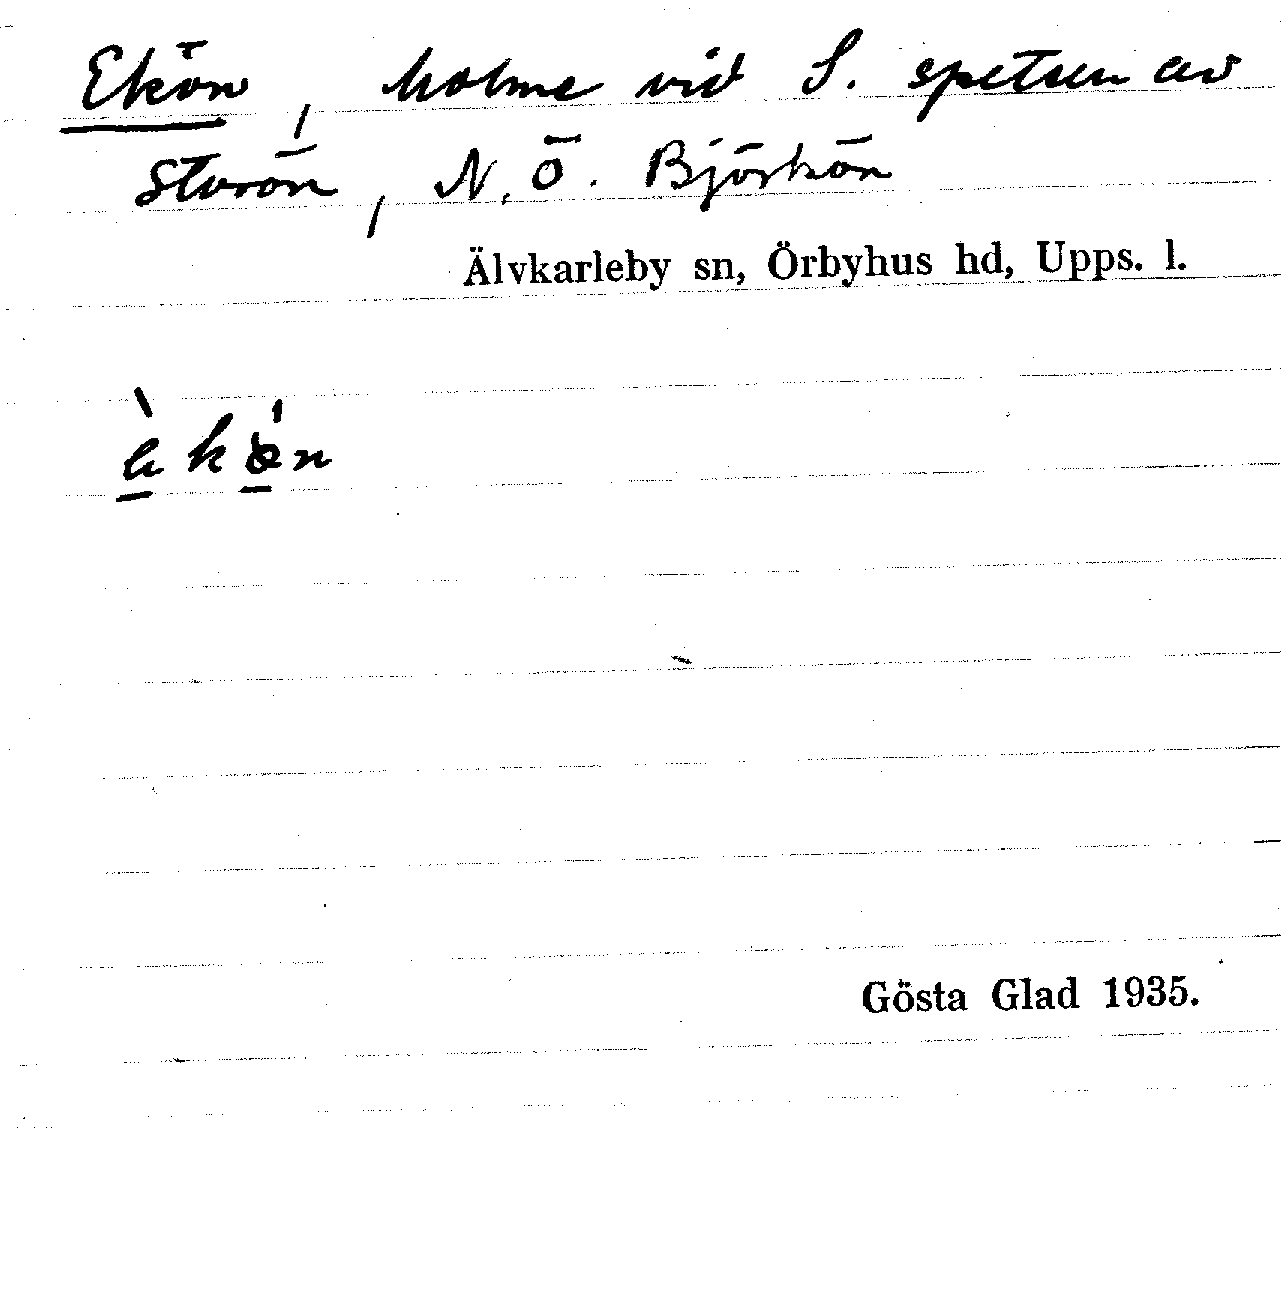 Ekön, holme vid S. spetsen av
Storön, N.Ö. Björkön
Älvkarleby sn, Örbyhus hd, Upps. l.
Gösta Glad 1935.